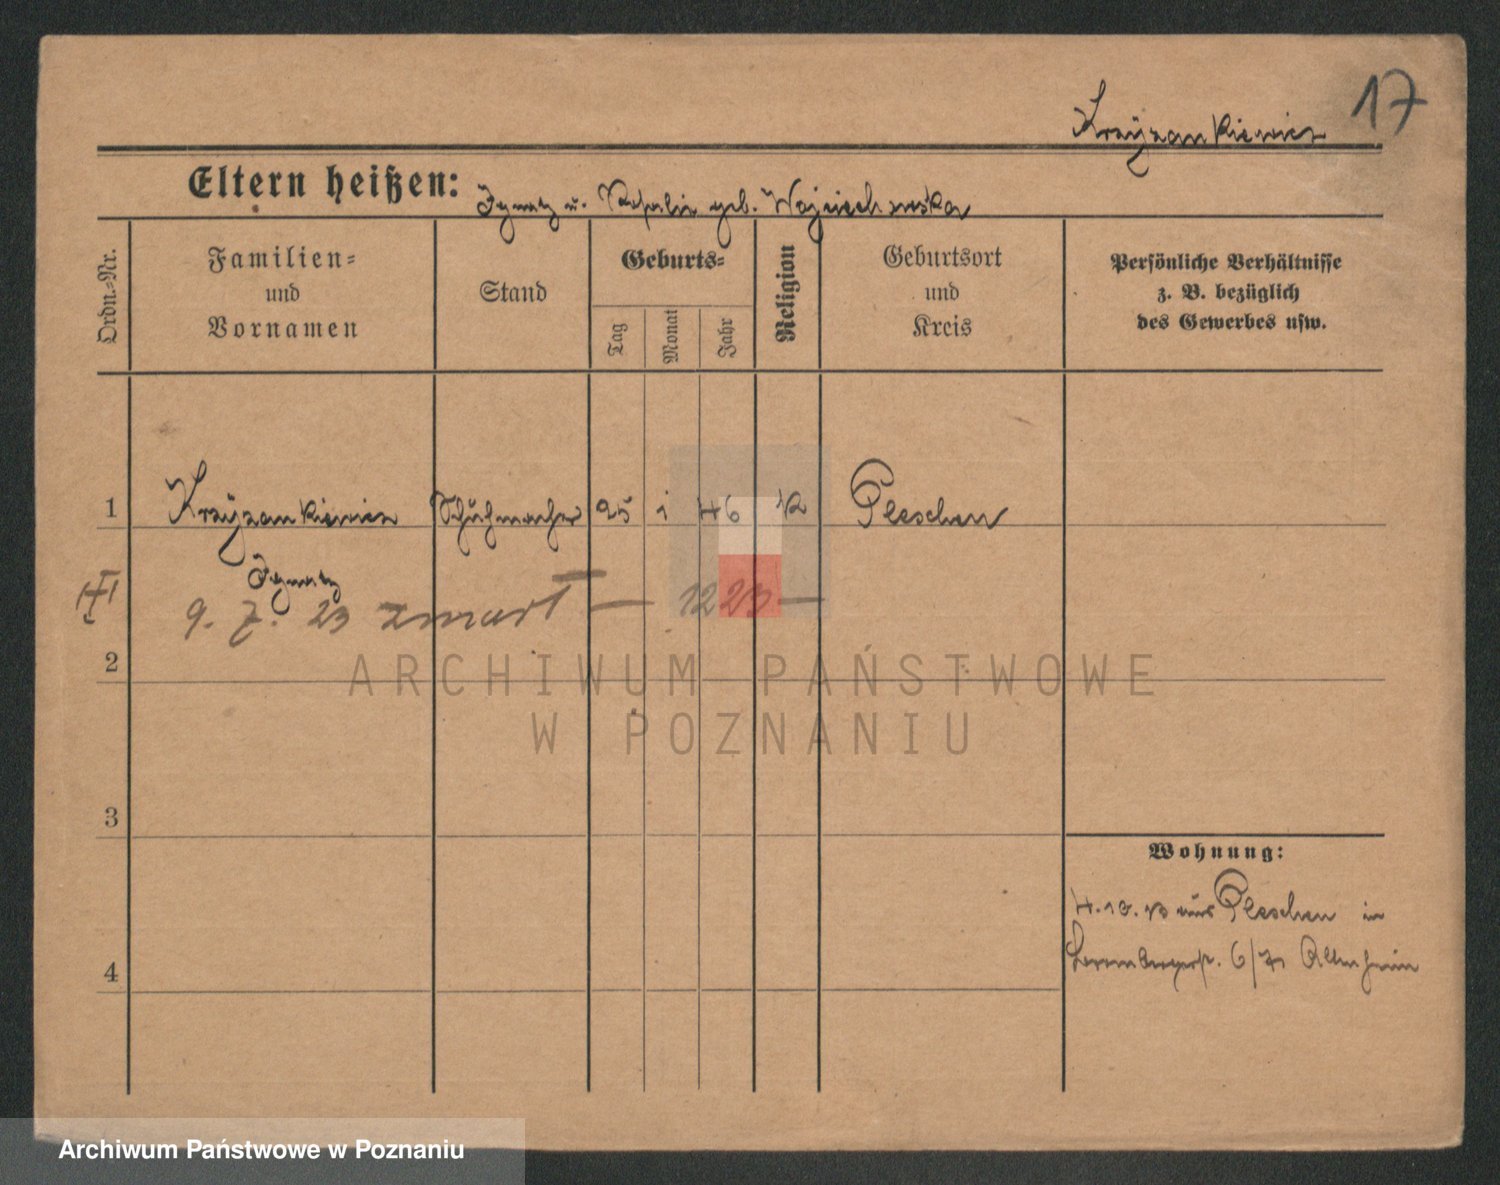 17
Krzyzankiewicz
Eltern heißen: Ignatz u. Rosalie geb. Wojciechowska
Ordn.=Nr.
Familien=
und
Vornamen
Stand
Geburts=
Tag
Monat
Jahr
Religion
Geburtsort
und
Kreis
Persönliche Verhältnisse
z. B. bezüglich
des Gewerbes usw.
1 Krzyzankiewicz Schuhmacher 25 1 46 K Pleschen
Ignatz
9. 7. 23 zmarł — 1223 —
2
3
4
Wohnung:
4. 10. 13 aus Pleschen in
6/7 Altenheim
ARCHIWUM PAŃSTWOWE
W POZNANIU
Archiwum Państwowe w Poznaniu